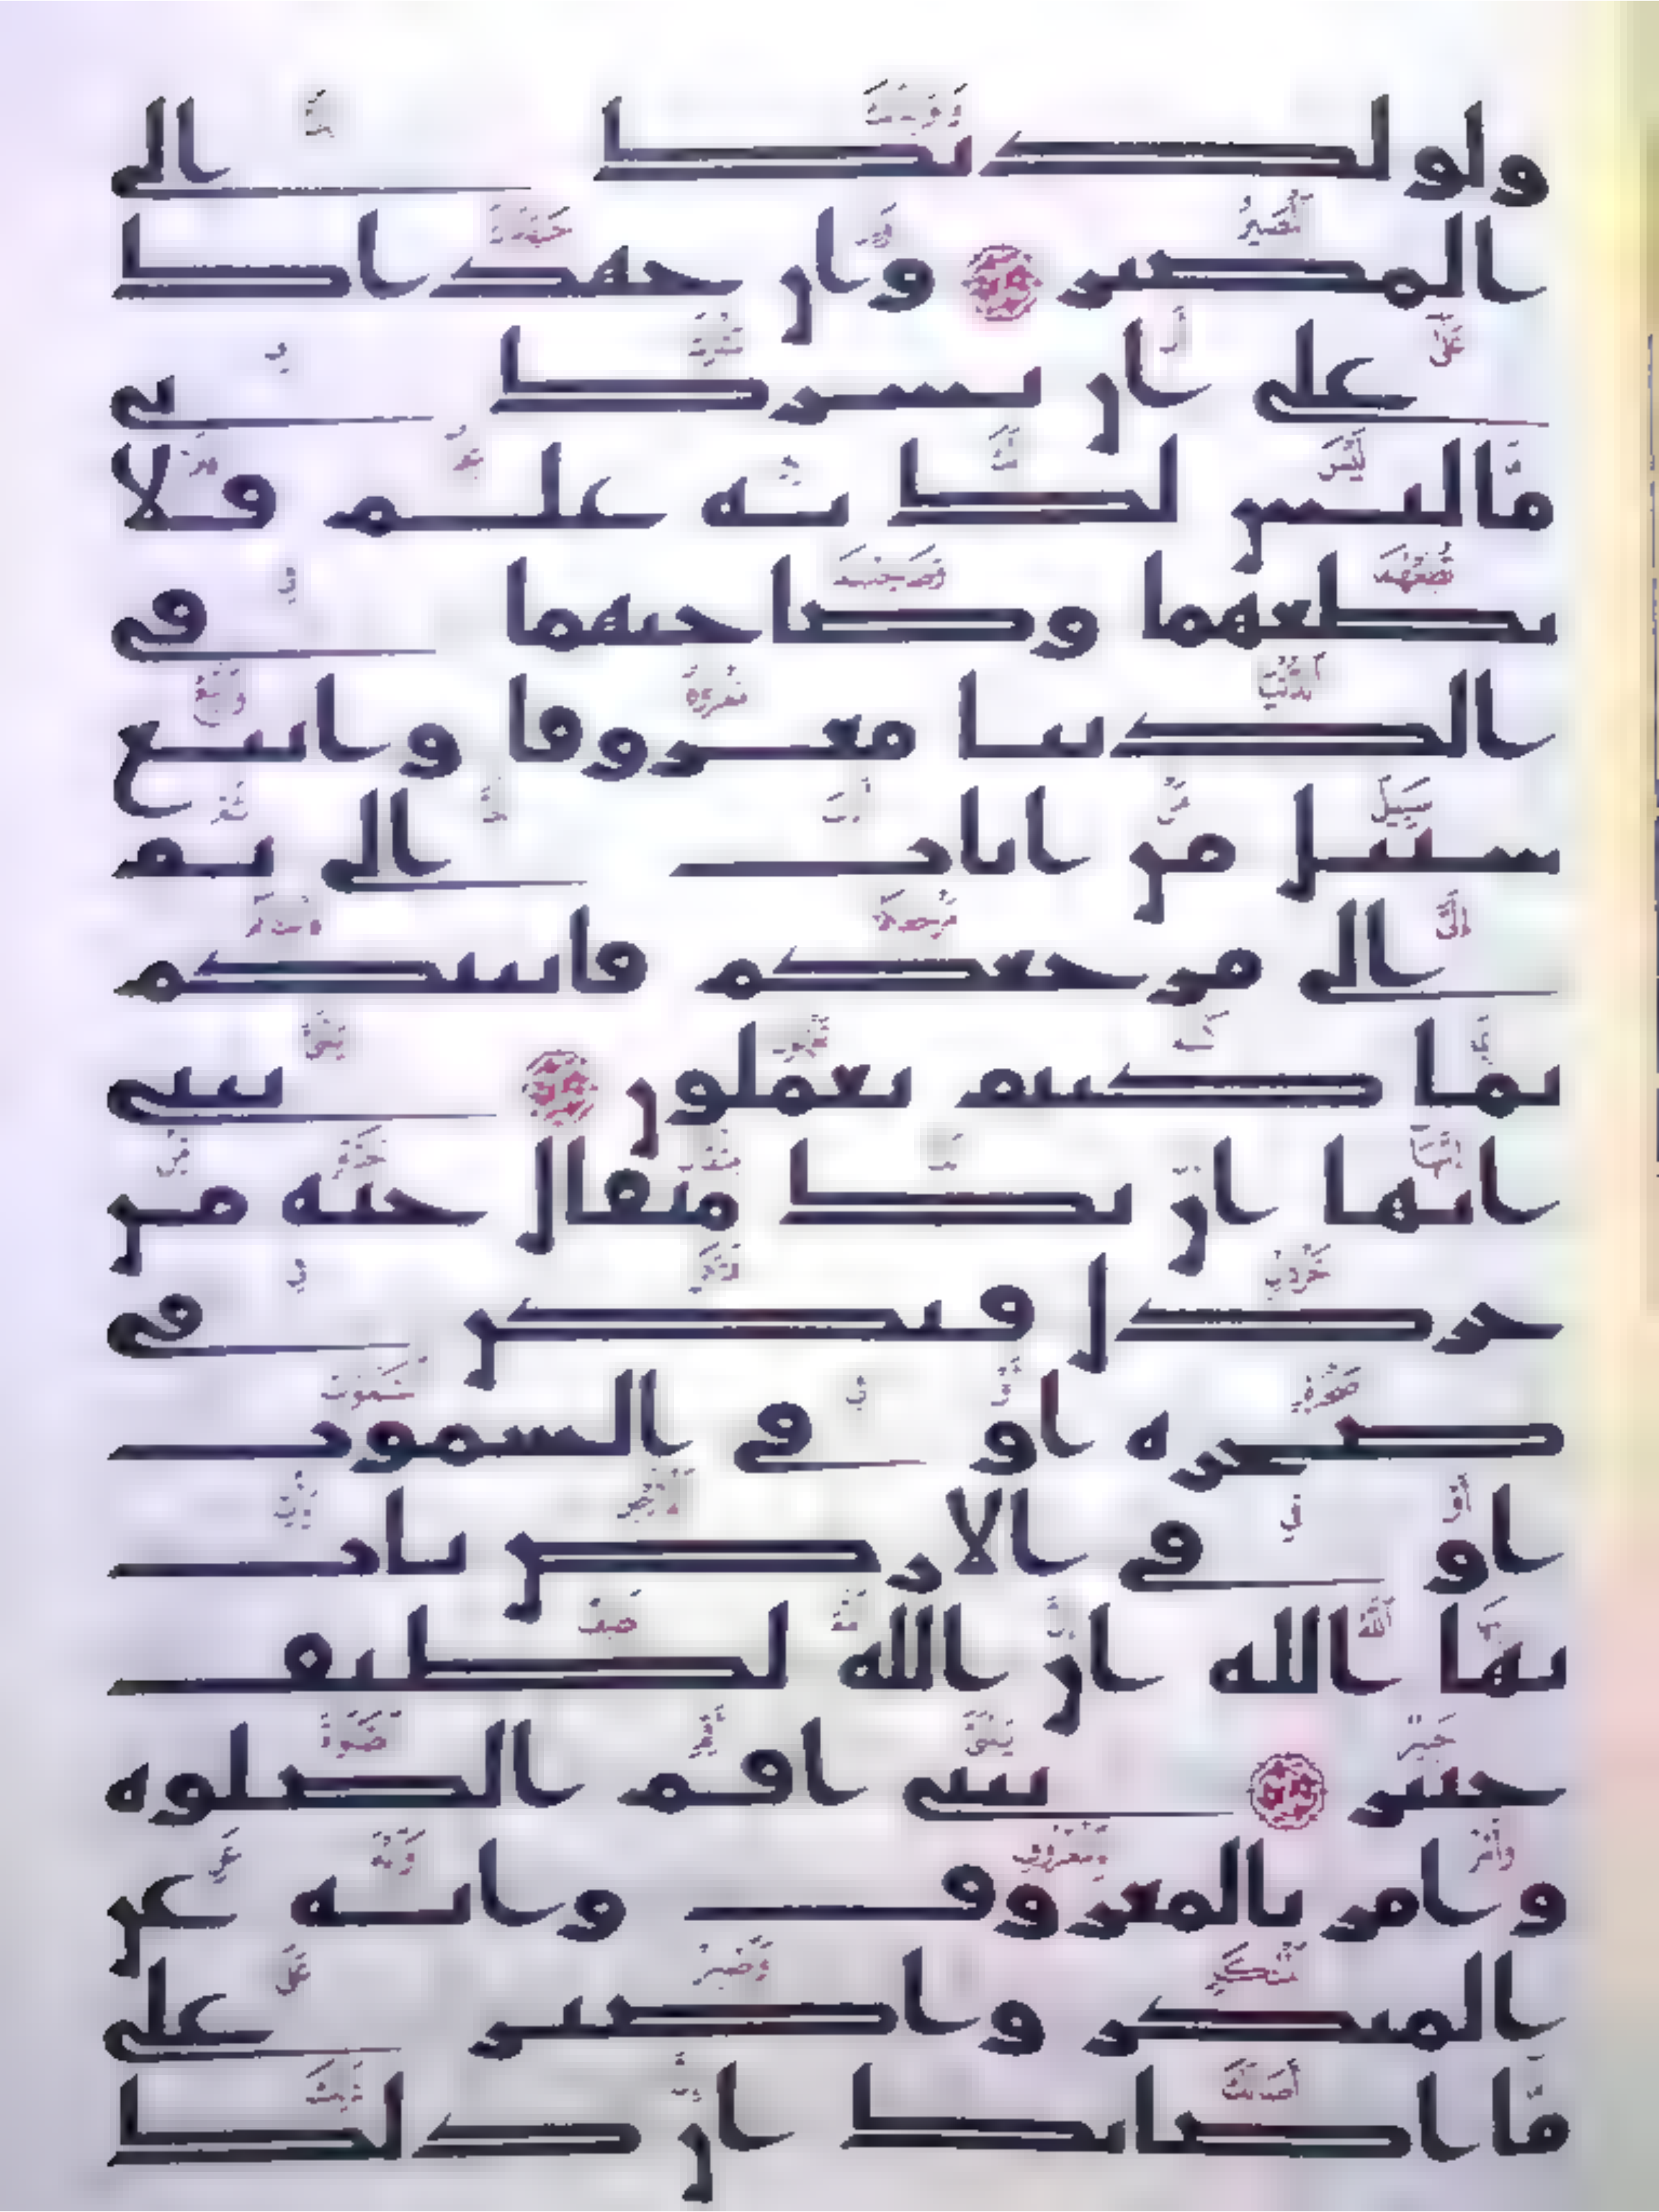 ولولديك الى
المصير وان جهداك
على ان تشرك بى
ما ليس لك به علم فلا
تطعهما وصاحبهما فى
الدنيا معروفا واتبع
سبيل من اناب الى ثم
الى مرجعكم فانبئكم
بما كنتم تعملون يبنى
انها ان تك مثقال حبة من
خردل فتكن فى
صخرة او فى السموت
او فى الارض يات
بها الله ان الله لطيف
خبير يبنى اقم الصلوة
وامر بالمعروف وانه عن
المنكر واصبر على
ما اصابك ان ذلك